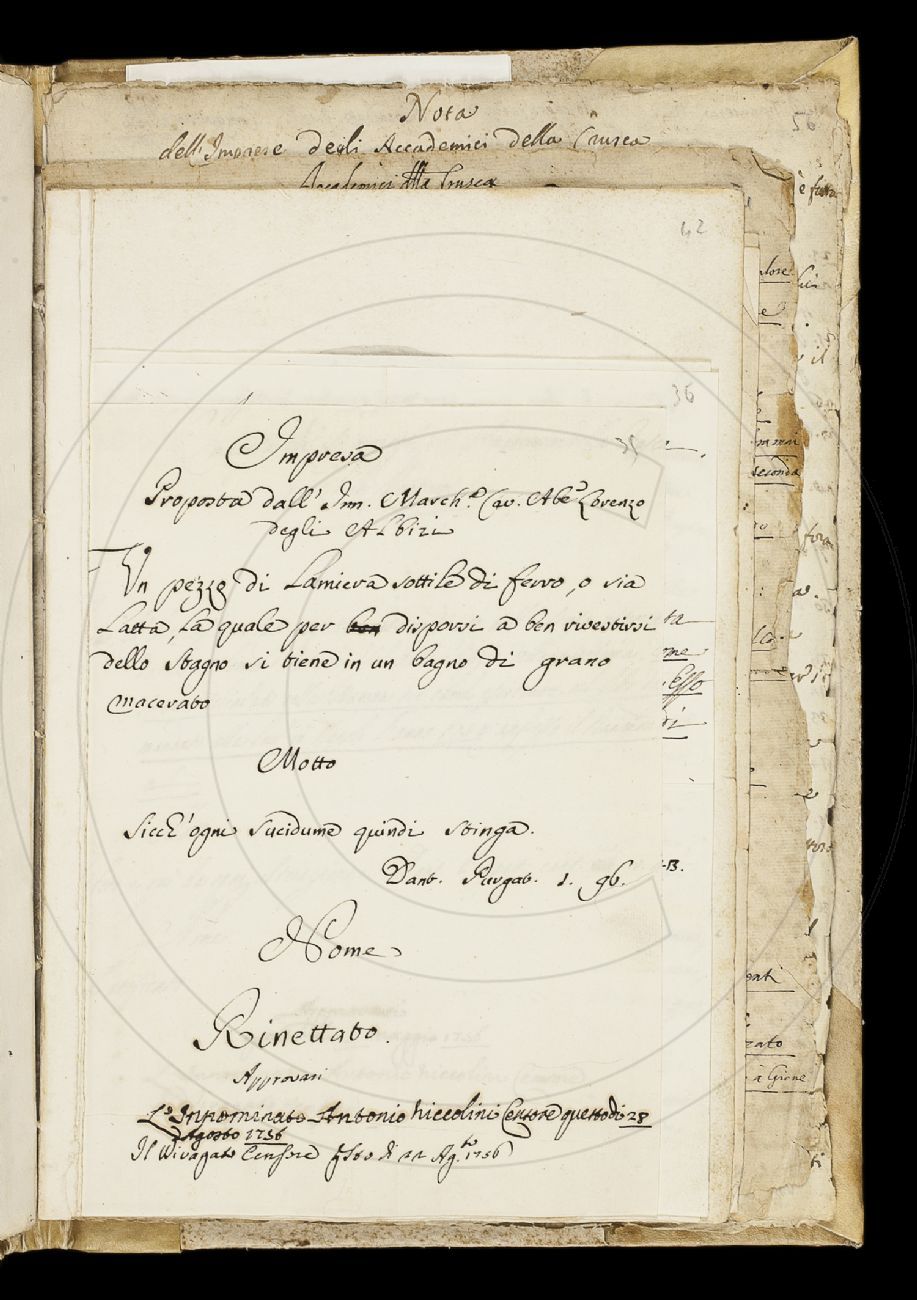 Nota
dell'Imprese degli Accademici della Crusca
Accademici della Crusca
56
è fatta
42
36
35
Impresa
Proposta dall' Inn. March.e Cav. Abe. Lorenzo
degli Albizi
Un pezzo di Lamiera sottile di ferro, o sia
Latta, la quale per ben disporsi a ben rivestirsi
dello stagno si tiene in un bagno di grano
macerato
Motto
Sicch' ogni sucidume quindi stinga.
Dant. Purgat. 1. 96.
Nome
Rinettato.
Approvasi
L'Innominato Antonio Niccolini Censore questo dì 28
Agosto 1756
Il Divagato Censore q.sto dì 22 Ag.to 1756
il
seconda
ta
me
Esso
B.
ti